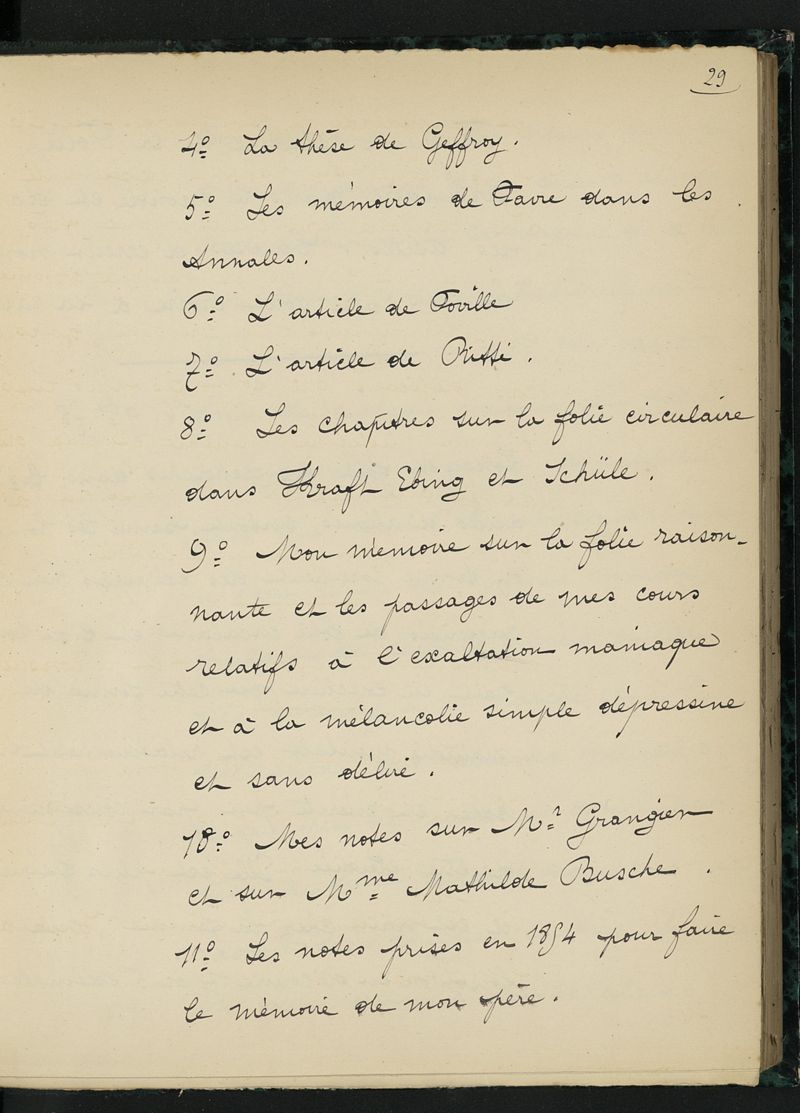 29
4º La thèse de Geffroy.
5º Les mémoires de Favre dans les
Annales.
6º L'article de Foville
7º L'article de Ritti.
8º Les chapitres sur la folie circulaire
dans Kraft Ebing et Schüle.
9º Mon mémoire sur la folie raison-
nante et les passages de mes cours
relatifs à l'exaltation maniaque
et à la mélancolie simple dépressine
et sans délire.
10º Mes notes sur Mr Grangier
et sur Mme Mathilde Busche.
11º Les notes prises en 1854 pour faire
le mémoire de mon père.